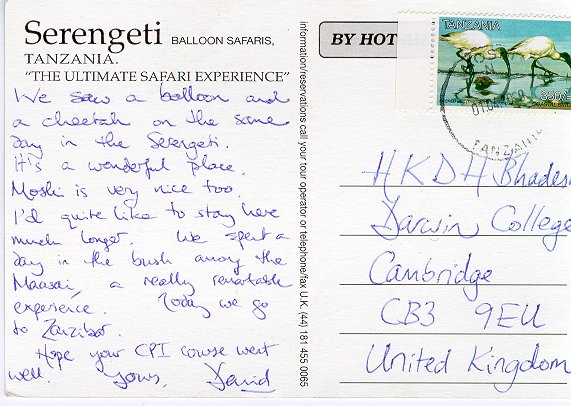 Serengeti BALLOON SAFARIS,
TANZANIA.
"THE ULTIMATE SAFARI EXPERIENCE"
We saw a balloon and
a cheetah on the same
day in the Serengeti.
It's a wonderful place.
Moshi is very nice too.
I'd quite like to stay here
much longer. We spent a
day in the bush among the
Maasai, a really remarkable
experience. Today we go
to Zanzibar.
Hope your CPI course went
well. Yours, David
information/reservations call your tour operator or telephone/fax U.K. (44) 181 455 0065
BY HOT
TANZANIA
TANZANIA
HKDH Bhadesh
Darwin College
Cambridge
CB3 9EU
United Kingdom